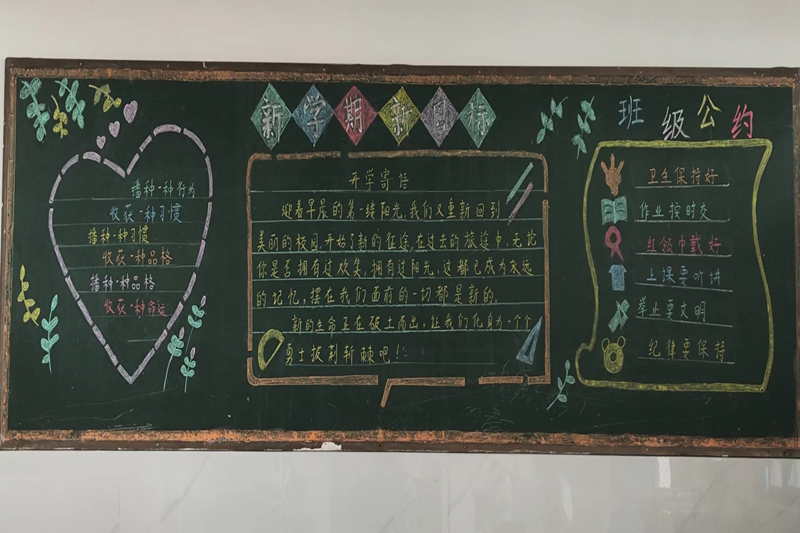 新学期新目标
班级公约
播种一种行为
收获一种习惯
播种一种习惯
收获一种品格
播种一种品格
收获一种命运
开学寄语
迎着早晨的第一缕阳光,我们又重新回到
美丽的校园,开始了新的征途,在过去的旅途中,无论
你是否拥有过欢笑,拥有过阳光,这都已成为永远
的记忆,摆在我们面前的一切都是新的。
新的生命正在破土而出,让我们化身为一个个
勇士披荆斩棘吧!
卫生保持好
作业按时交
红领巾戴好
上课要听讲
举止要文明
纪律要保持